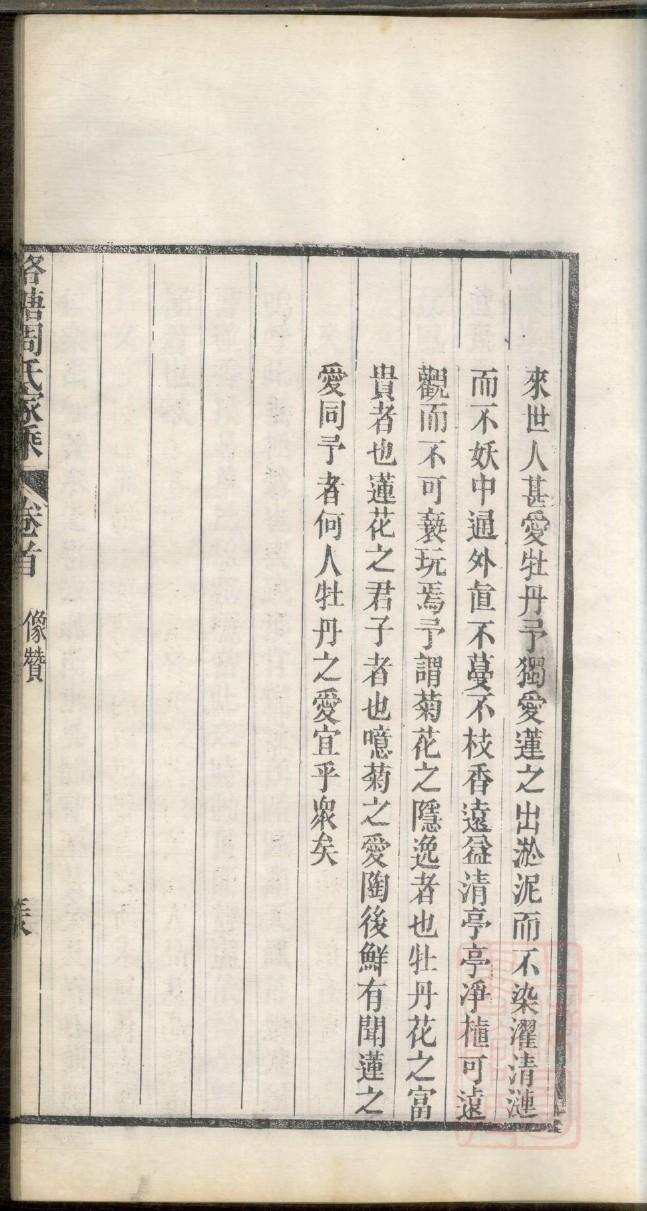 來世人甚愛牡丹予獨愛蓮之出淤泥而不染濯清漣
而不妖中通外直不蔓不枝香遠益清亭亭凈植可遠
觀而不可褻玩焉予謂菊花之隱逸者也牡丹花之富
貴者也蓮花之君子者也噫菊之愛陶後鮮有聞蓮之
愛同予者何人牡丹之愛宜乎衆矣
塘周氏家乘 卷首 像贊